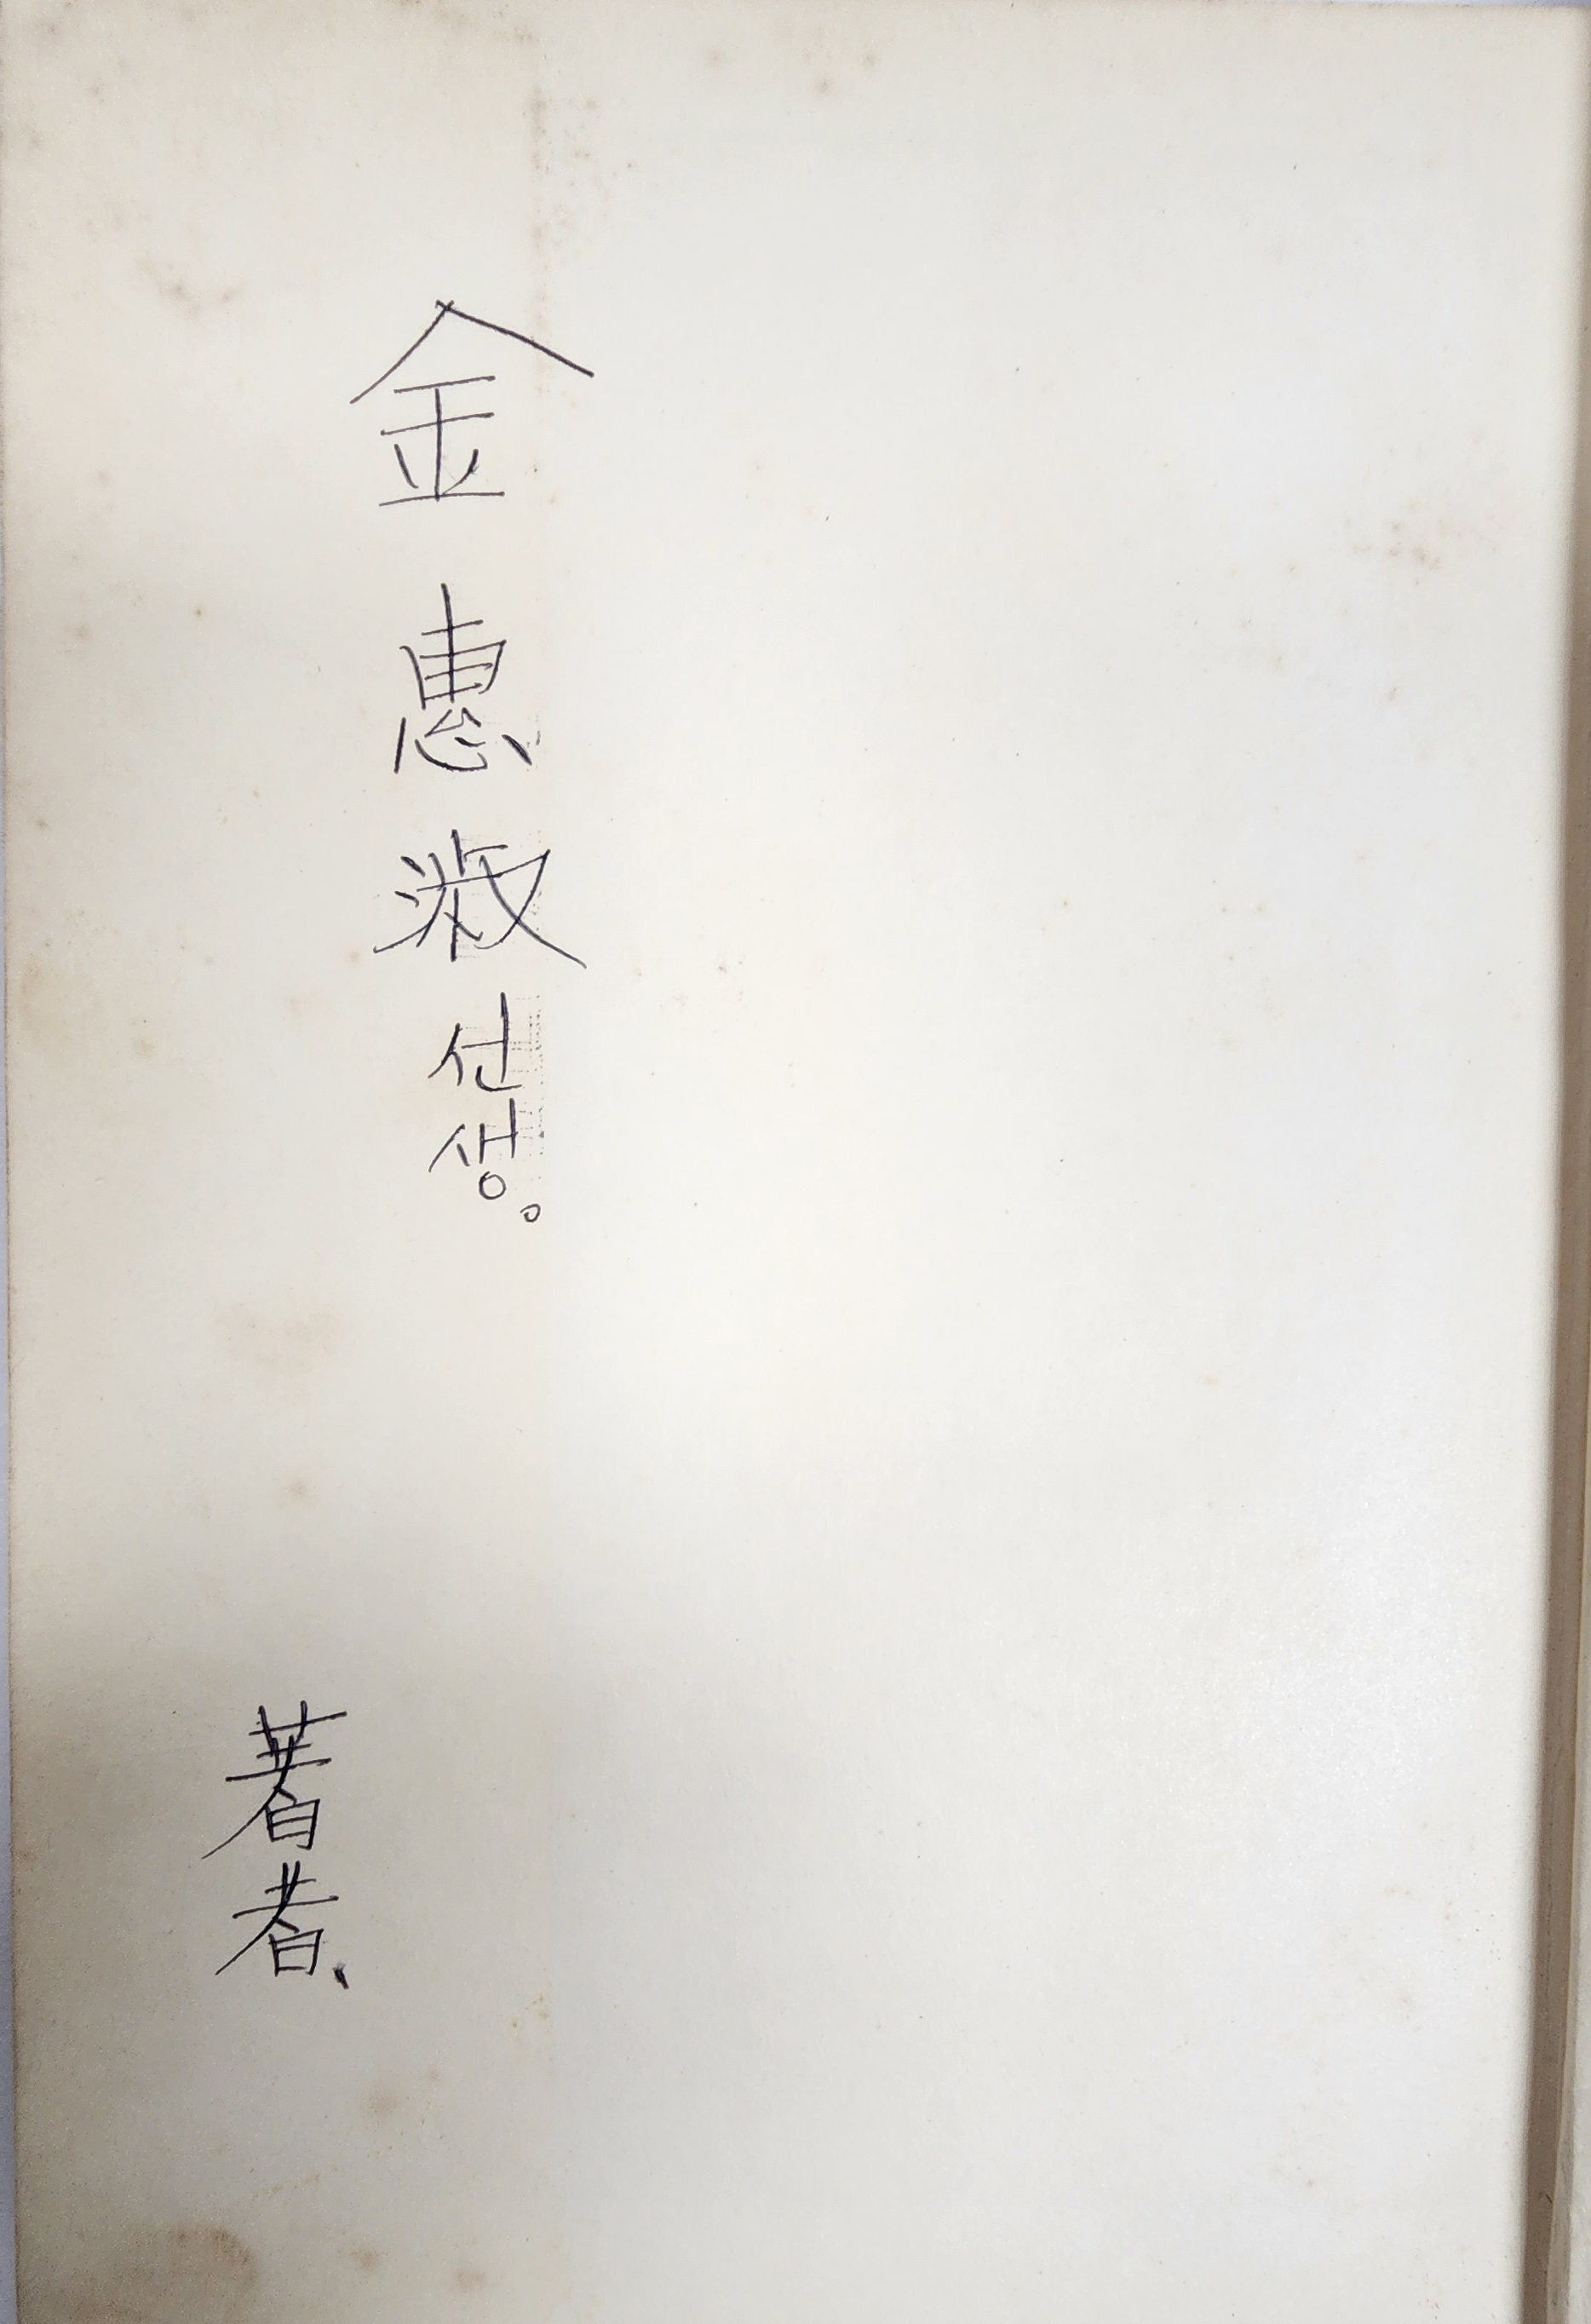 金惠淑 선생。
著者、